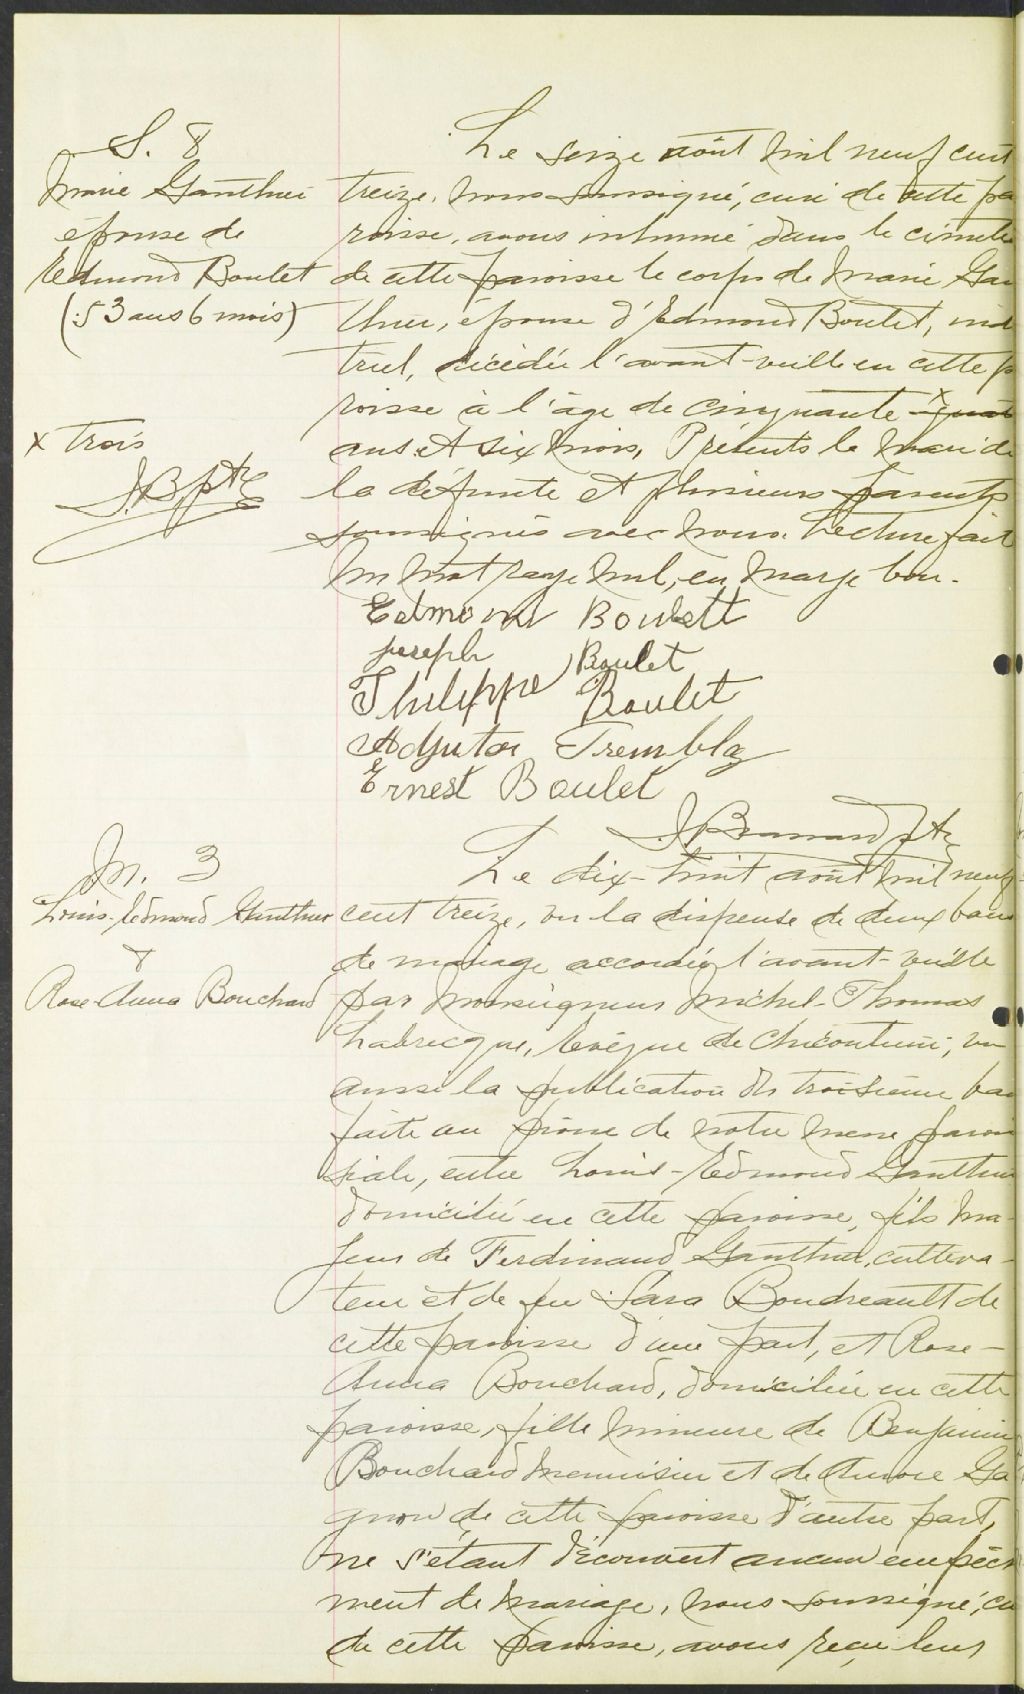 S. 8
Marie Gauthier
épouse de
Edmond Boulet
(53 ans 6 mois)
x trois
JB ptre
Le seize août mil neuf cent
treize, nous soussigné, curé de cette pa
roisse, avons inhumé dans le cimeti
de cette paroisse le corps de Marie Gau
thier, épouse d'Edmond Boulet, indus
triel, décédée l'avant-veille en cette p
roisse à l'âge de cinquante x quat
ans et six mois. Présents le mari de
la défunte et plusieurs parents
soussignés avec nous. Lecture fait
Un mot rayé nul, en marge bon.
Edmond Boulett
Joseph Boulet
Philippe Boulet
Adjutor Tremblay
Ernest Boulet
ptre
M. 3
Louis-Edmond Gauthier
&
Rose-Anna Bouchard
Le dix-huit août mil neuf
cent treize, vu la dispense de deux bans
de mariage accordée l'avant-veille
par Monseigneur Michel-Thomas
Labrecque, évêque de Chicoutimi; vu
aussi la publication du troisième ban
faite au prône de notre messe parois
siale, entre Louis-Edmond Gauthier
domicilié en cette paroisse, fils ma-
jeur de Ferdinand Gauthier, cultiva-
teur et de feu Sara Boudreault de
cette paroisse d'une part, et Rose-
Anna Bouchard, domiciliée en cette
paroisse, fille mineure de Benjamin
Bouchard menuisier et de Aurore Ga
gnon de cette paroisse d'autre part,
ne s'étant découvert aucun empêch
ment de mariage, nous soussigné, cu
de cette paroisse, avons reçu leur